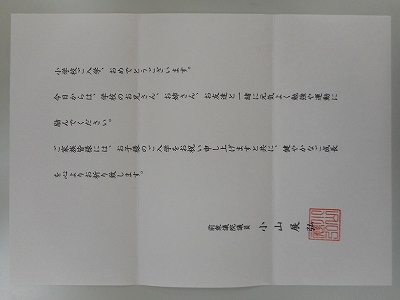 小学校ご入学、おめでとうございます。
今日からは、学校のお兄さん、お姉さん、お友達と一緒に元気よく勉強や運動に
励んでください。
ご家族皆様には、お子様のご入学をお祝い申し上げますと共に、健やかなご成長
を心よりお祈り致します。
前衆議院議員 小山展弘